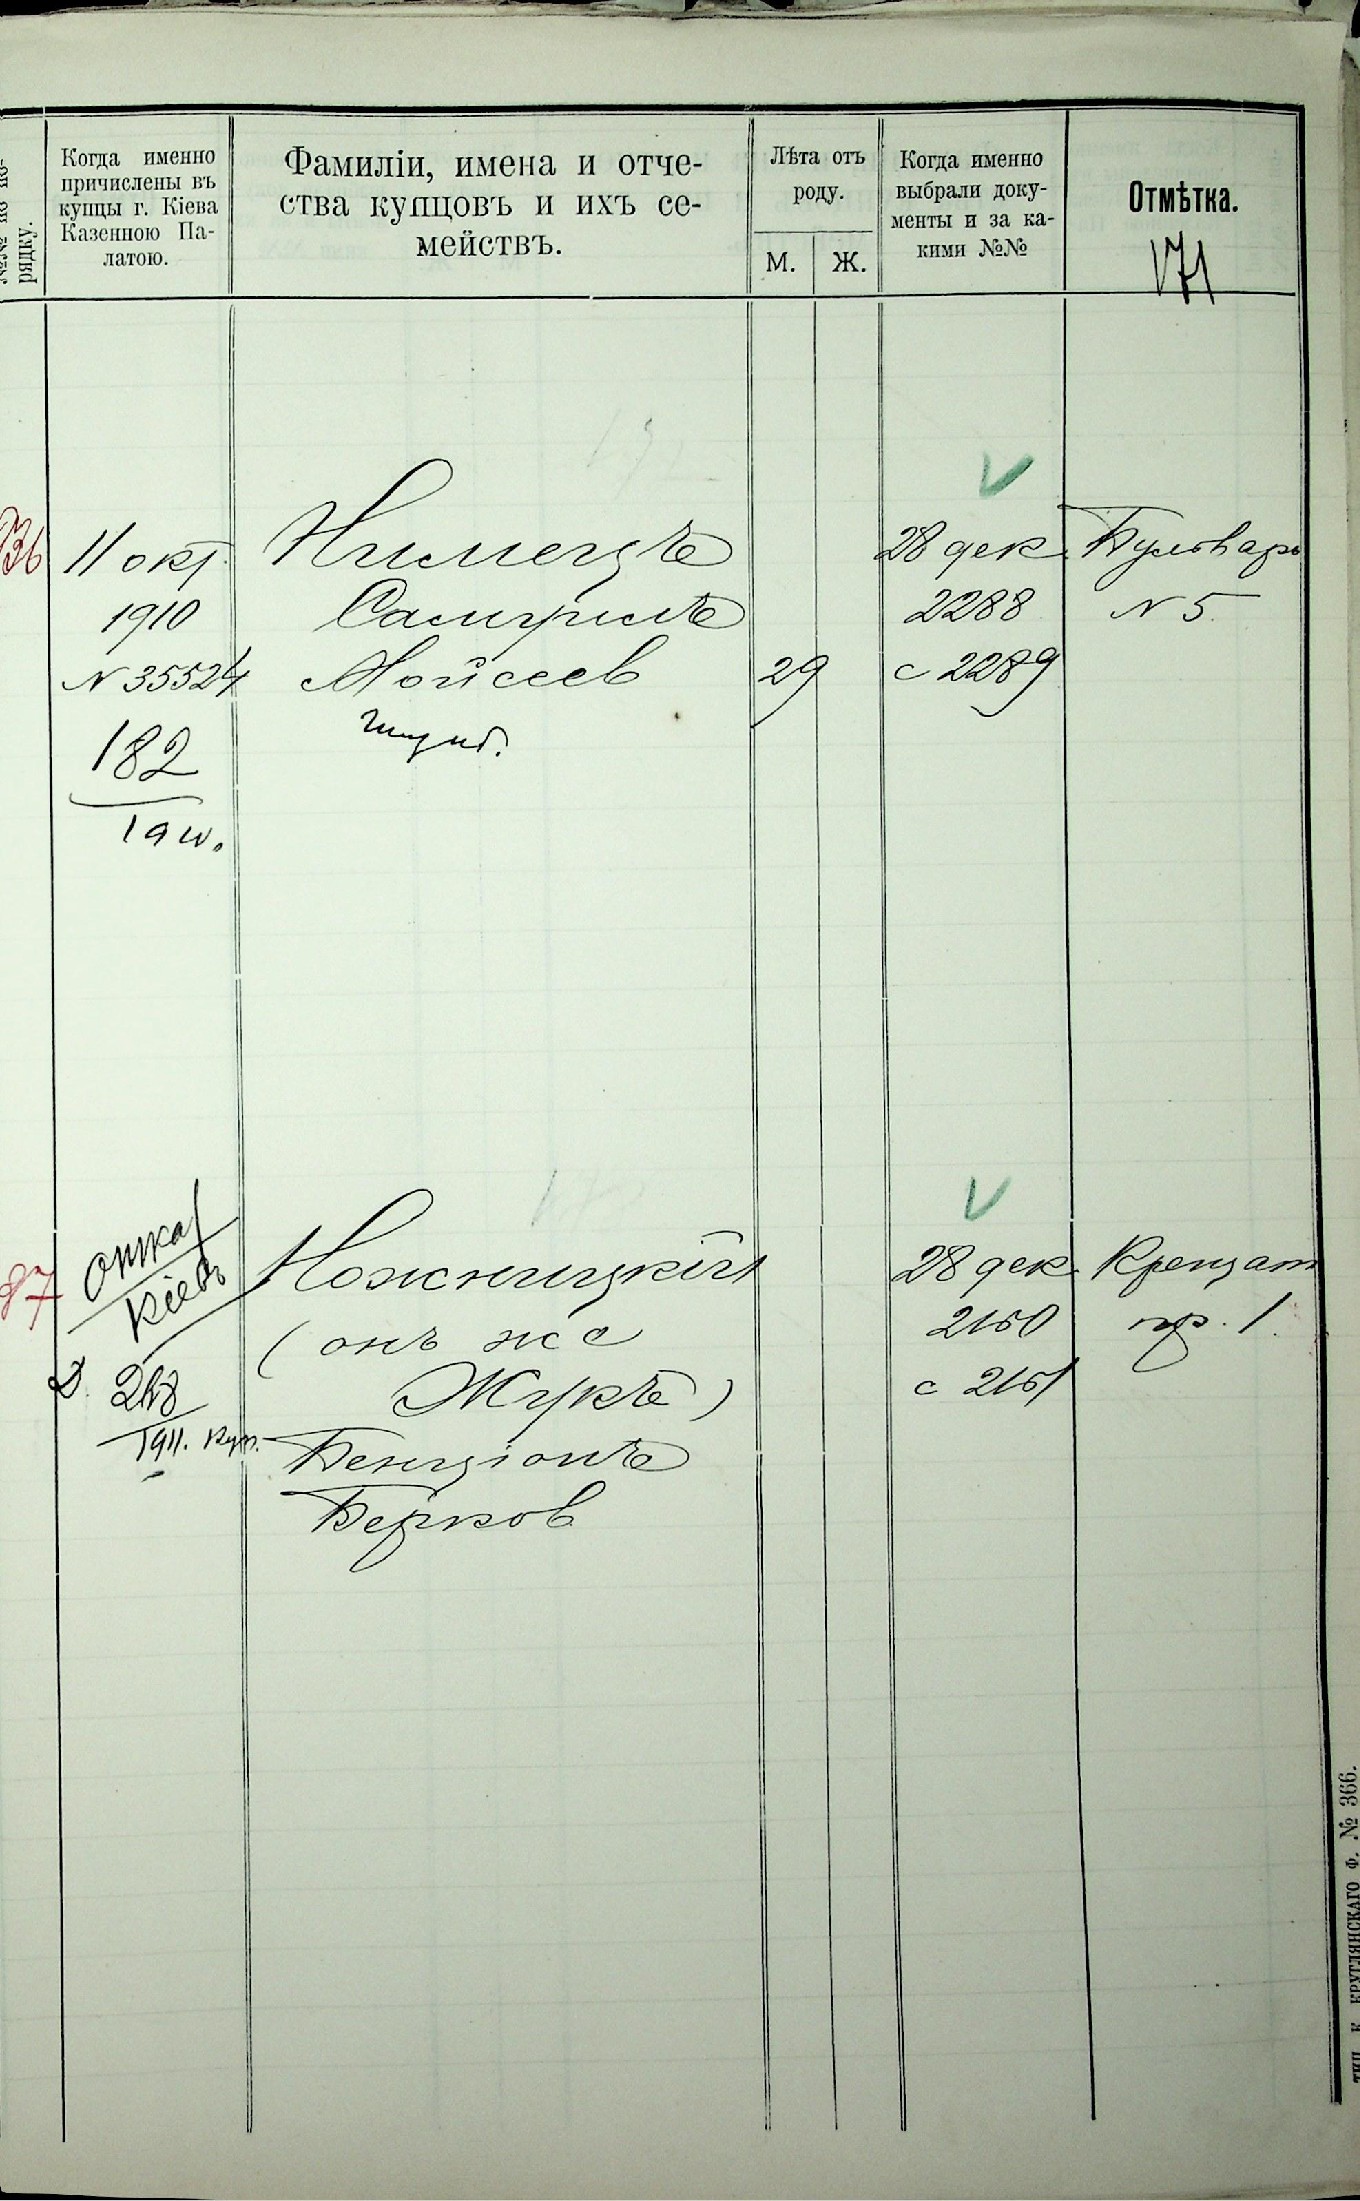 рядку.
Когда именно
причислены въ
купцы г. Кіева
Казенною Па-
латою.
Фамиліи, имена и отче-
ства купцовъ и ихъ се-
мействъ.
Лѣта отъ
роду.
М. Ж.
Когда именно
выбрали доку-
менты и за ка-
кими №№
Отмѣтка.
171
36
11 окт.
1910
N 35524
182
Нимецъ
Самуилъ
Мойсеев
29
28 дек.
2288
с 2289
Бульваръ
N 5.
87
Кіевъ
1911. Куп.
Ножницкій
(онъ же
Жукъ)
Бенціонъ
Берков
28 дек.
2150
с 2151
Крещат
1.
ТИП. К. КРУГЛЯНСКАГО Ф. № 366.